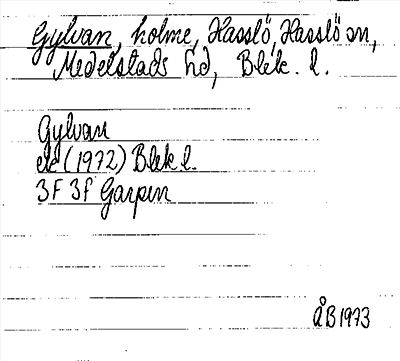 Gylvan, holme, Hasslö, Hasslö sn,
Medelstads hd, Blek. l.
Gylvan
ek (1972) Blek l.
3F 3f Garpen
ÅB 1973